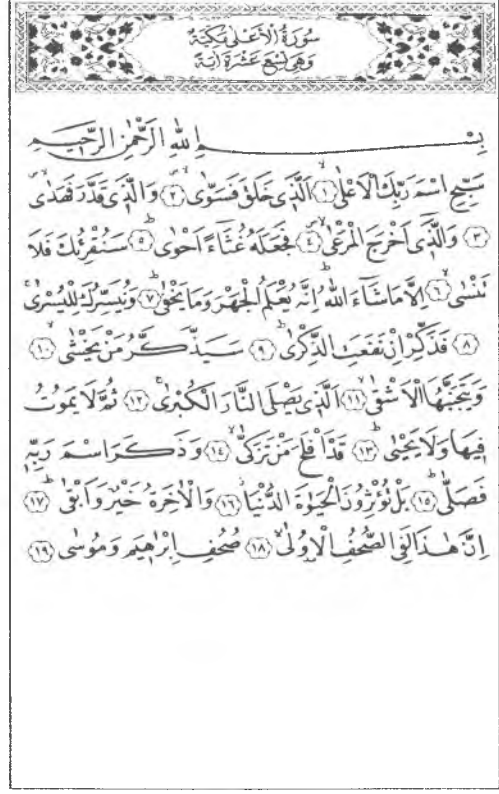 سُورَةُ الْاَعْلٰى مَكِّيَّةٌ
وَهِيَ تِسْعَ عَشْرَةَ اٰيَةً
بِسْمِ اللّٰهِ الرَّحْمٰنِ الرَّحِيمِ
سَبِّحِ اسْمَ رَبِّكَ الْاَعْلٰىۙ ﴿١﴾ اَلَّذِي خَلَقَ فَسَوّٰىۙ ﴿٢﴾ وَالَّذِي قَدَّرَ فَهَدٰىۙ
﴿٣﴾ وَالَّذِٓي اَخْرَجَ الْمَرْعٰىۙ ﴿٤﴾ فَجَعَلَهُ غُثَٓاءً اَحْوٰىۜ ﴿٥﴾ سَنُقْرِئُكَ فَلَا
تَنْسٰىۙ ﴿٦﴾ اِلَّا مَا شَٓاءَ اللّٰهُۜ اِنَّهُ يَعْلَمُ الْجَهْرَ وَمَا يَخْفٰىۜ ﴿٧﴾ وَنُيَسِّرُكَ لِلْيُسْرٰىۚ
﴿٨﴾ فَذَكِّرْ اِنْ نَفَعَتِ الذِّكْرٰىۜ ﴿٩﴾ سَيَذَّكَّرُ مَنْ يَخْشٰىۙ ﴿١٠﴾
وَيَتَجَنَّبُهَا الْاَشْقٰىۙ ﴿١١﴾ اَلَّذِي يَصْلَى النَّارَ الْكُبْرٰىۚ ﴿١٢﴾ ثُمَّ لَا يَمُوتُ
فِيهَا وَلَا يَحْيٰىۜ ﴿١٣﴾ قَدْ اَفْلَحَ مَنْ تَزَكّٰىۙ ﴿١٤﴾ وَذَكَرَ اسْمَ رَبِّهِ
فَصَلّٰىۜ ﴿١٥﴾ بَلْ تُؤْثِرُونَ الْحَيٰوةَ الدُّنْيَاۙ ﴿١٦﴾ وَالْاٰخِرَةُ خَيْرٌ وَاَبْقٰىۜ ﴿١٧﴾
اِنَّ هٰذَا لَفِي الصُّحُفِ الْاُو۫لٰىۙ ﴿١٨﴾ صُحُفِ اِبْرٰهِيمَ وَمُوسٰى ﴿١٩﴾